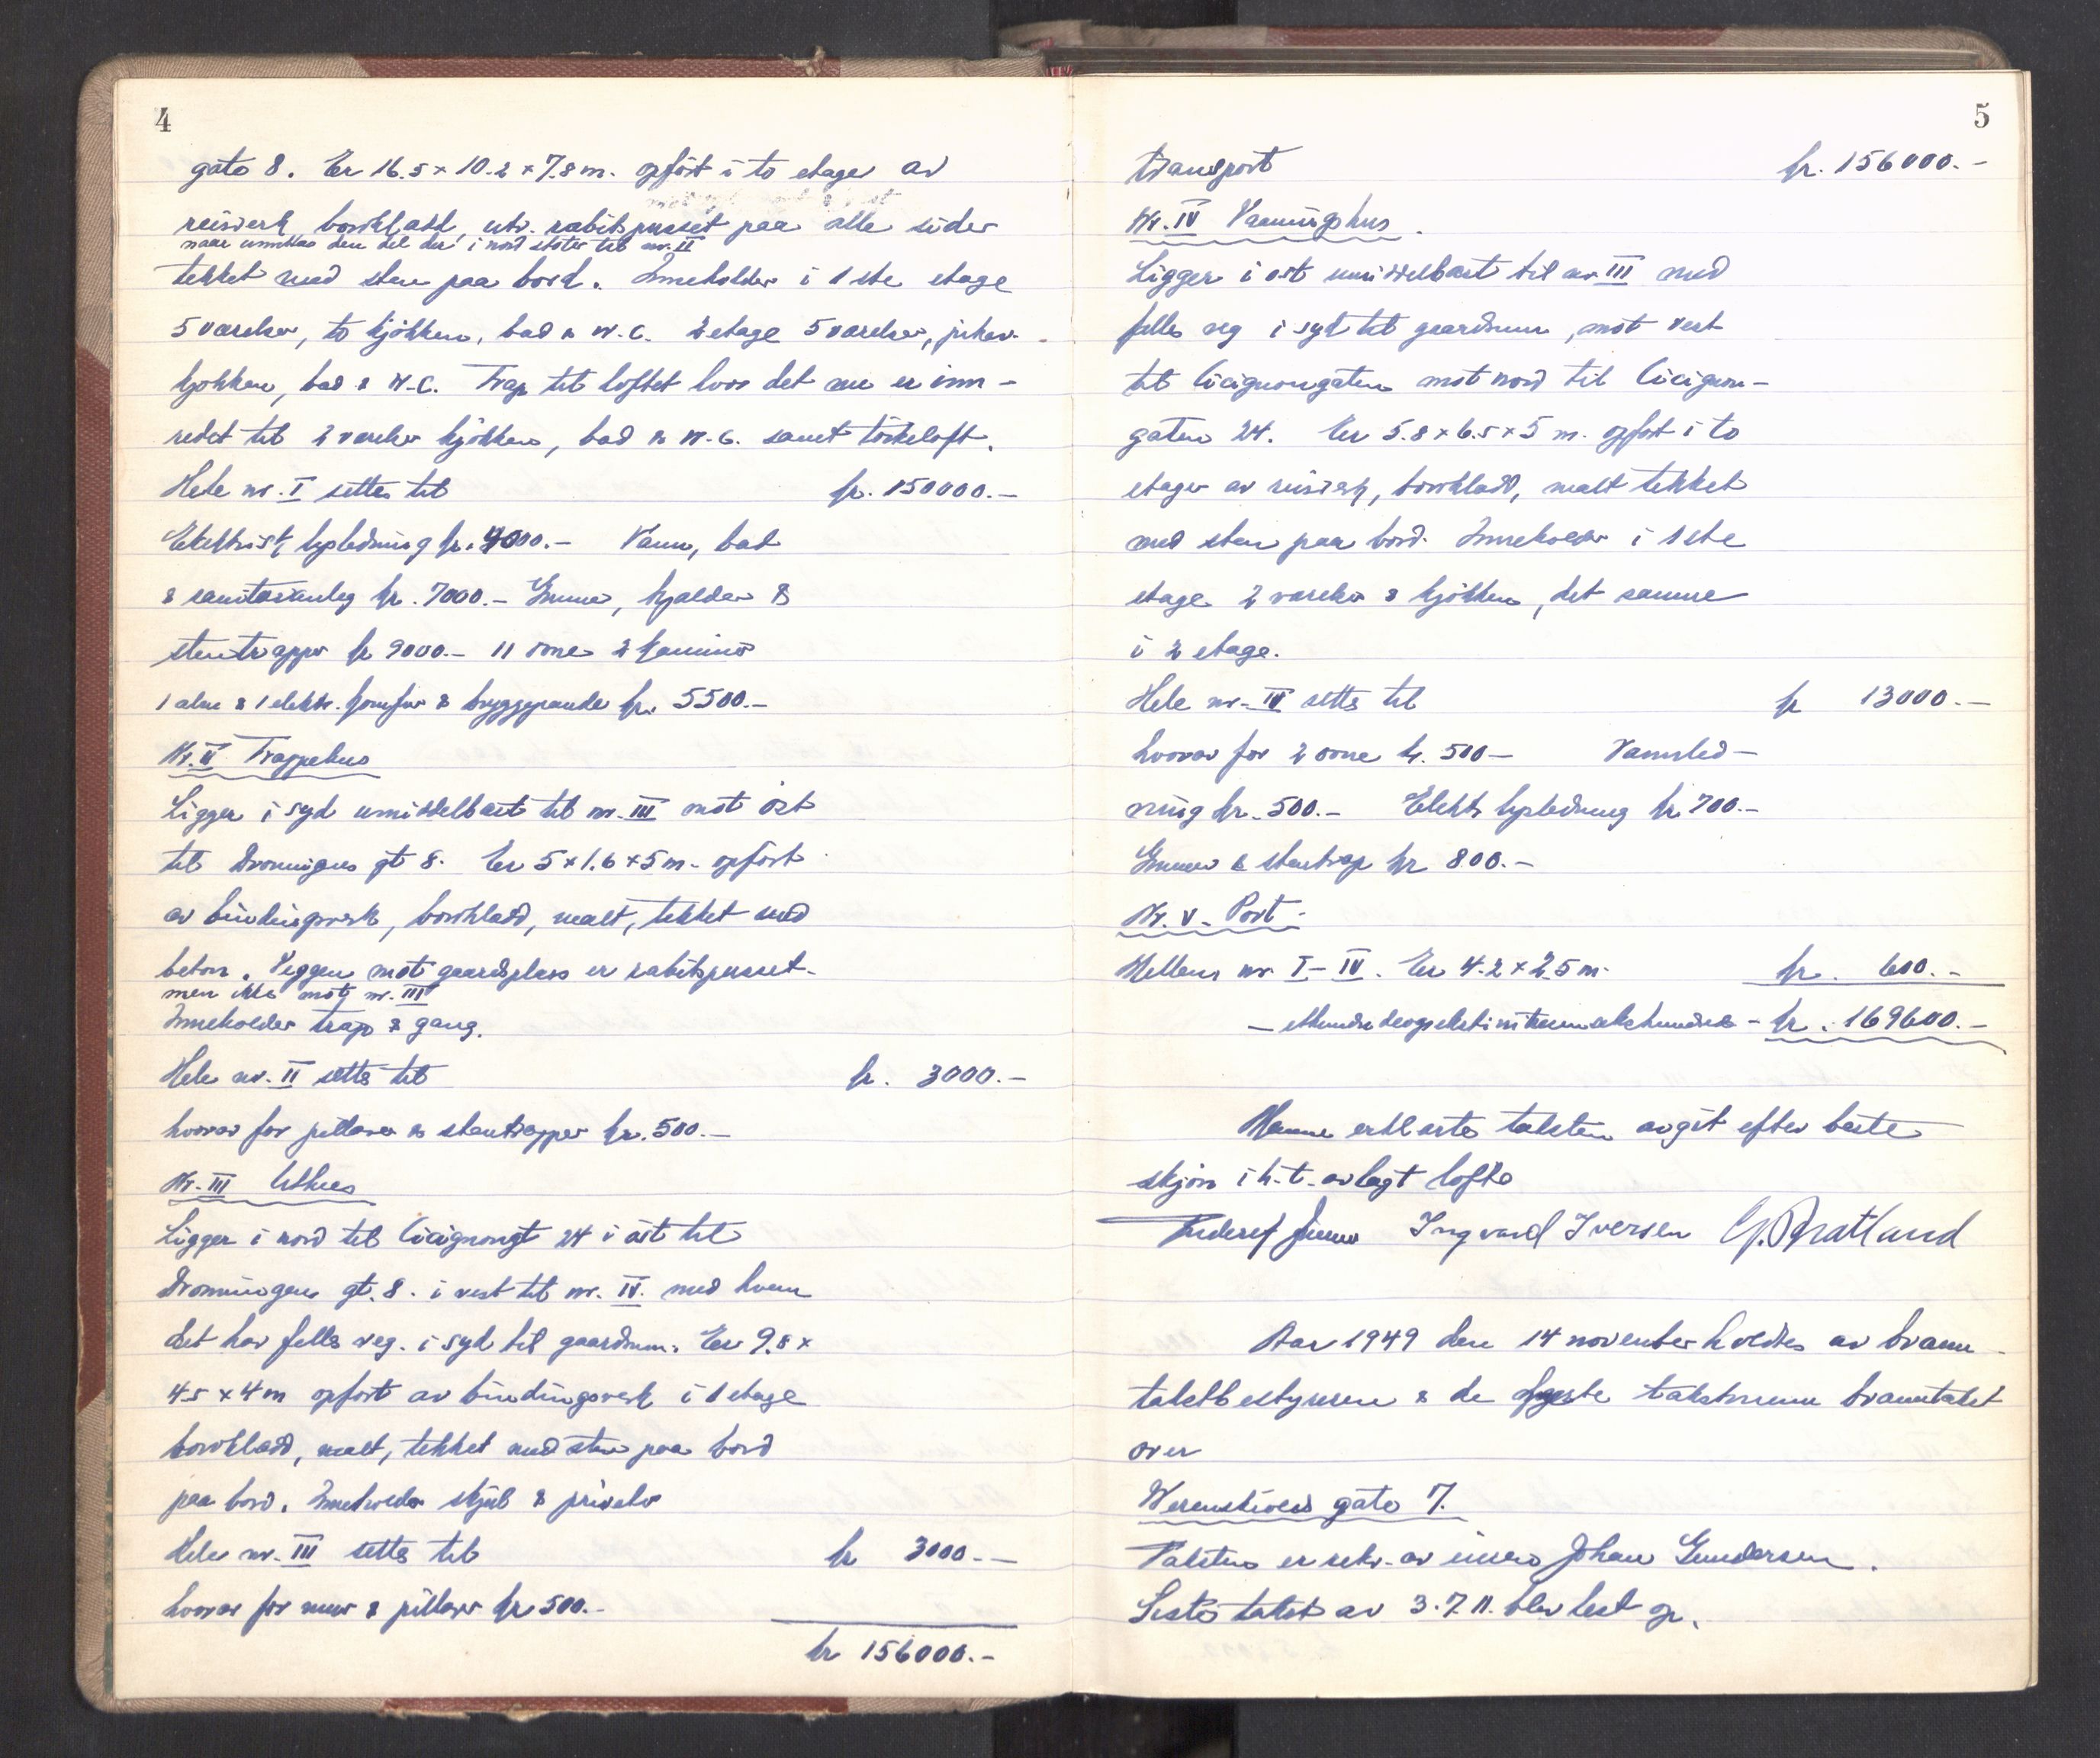 4
gate 8. Er 16.5 x 10.2 x 7.8 m. opført i to etager av
reisverk, bordkladd, utv. rabitspusset paa alle sider
naar unntas den del der i nord støter til nr. II
tekket med sten paa bord. Inneholder i 1ste etage
5 værelser, to kjøkken, bad & W.C. 2 etage 5 værelser,
kjøkken, bad & W.C. Trap til loftet hvor det nu er inn-
redet til 2 værelser kjøkken, bad & W.C. samt törkeloft.
Hele nr. I settes til kr. 150000.-
Elektrisk opledning kr. 4000.- Vann, bad
& sanitæranleg kr. 7000.- Grunn, kjælder &
stentrapper kr 9000.- 11 ovne 2 kaminer
1 alm & 1 elektr. komfur & bryggepande kr. 5500.-
Nr. II Trappehus
Ligger i syd umiddelbart til nr. III mot öst
til Dronningens gt 8. Er 5 x 1.6 x 5 m. opført
av bindingsverk, bordkladd, malt, tekket med
beton. Veggen mot gaardsplass er rabitspusset
men ikke mot nr. III
Inneholder trap & gang.
Hele nr. II settes til kr. 3000.-
hvorav for pillarer & stentrapper kr. 500.-
Nr. III Uthus
Ligger i nord til Cicignongt 24 i öst til
Dronningens gt. 8. i vest til nr. IV. med hvem
det har felles veg. i syd til gaardsrum. Er 9.8 x
4.5 x 4 m opført av bindingsverk i 1 etage
bordkladd, malt, tekket med sten paa bord
paa bord. Inneholder skjul & priveter
Hele nr. III settes til kr 3000.-
hvorav for mur & pillarer kr 500.-
kr 156000.-
5
Transport kr. 156000.-
Nr. IV Vaaningshus.
Ligger i öst umiddelbart til nr III med
felles veg i syd til gaardsrum, mot vest
til Cicignongaten mot nord til Cicignon-
gaten 24. Er 5.8 x 6.5 x 5 m. opført i to
etager av reisverk, bordkladd, malt tekket
med sten paa bord. Inneholder i 1ste
etage 2 værelser & kjökken, det samme
i 2 etage.
Hele nr. IV settes til kr 13000.-
hvorav for 2 ovne kr. 500- Vannled-
ning kr. 500.- Elektr opledning kr. 700.-
Grunn & stentrap kr 800.-
Nr. V. Port.
Mellem nr. I-IV. Er 4.2 x 2.5 m. kr. 600.-
- etthundredeogsekstinitusensekshundrede - kr. 169600.-
Menn erklærte taksten avgit efter beste
skjön i h.t. avlagt löfte
Ingvard Iversen G. Bratland
Aar 1949 den 14 november holdtes av brann-
takstbestyreren & de faste takstmenn branntakst
over
Werenskiolds gate 7.
Taksten er rekv. av eieren Johan Gundersen.
Siste takst av 3.7.11. blev lest op.